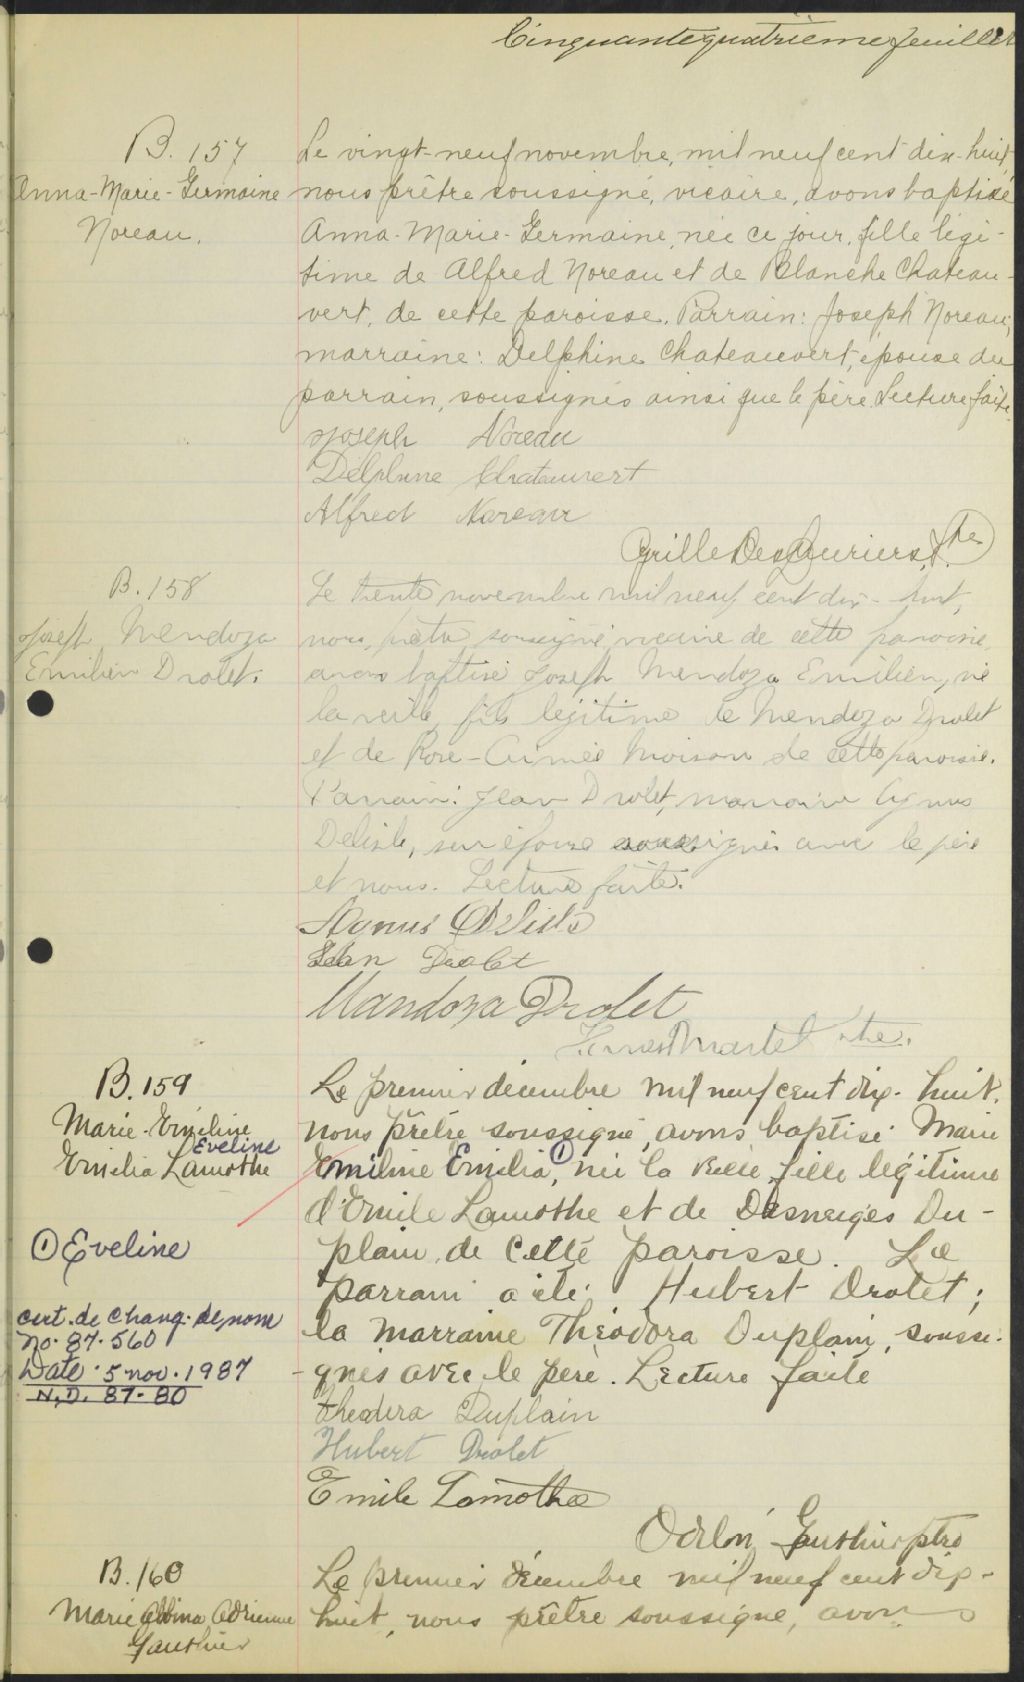 Cinquantequatrième feuillet
B. 157
Anna-Marie-Germaine
Noreau.
Le vingt-neuf novembre, mil neuf cent dix-huit,
nous prêtre soussigné, vicaire, avons baptisé
Anna-Marie-Germaine, née ce jour, fille légi-
time de Alfred Noreau et de Blanche Chateau-
vert, de cette paroisse. Parrain: Joseph Noreau;
marraine: Delphine Chateauvert, épouse du
parrain, soussignés ainsi que le père. Lecture faite.
Joseph Noreau
Delphine Chateauvert
Alfred Noreau
Cyrille DesLauriers, Ptre
B. 158
Joseph Mendoza
Emilien Drolet.
Le trente novembre mil neuf cent dix-huit,
nous, prêtre soussigné, vicaire de cette paroisse,
avons baptisé Joseph Mendoza Emilien, né
la veille, fils légitime de Mendoza Drolet
et de Rose-Aimée Moisan de cette paroisse.
Parrain: Jean Drolet, marraine Agnus
Delisle, son épouse soussignés avec le père
et nous. Lecture faite.
Agnus Delisle
Jean Drolet
Mandoza Drolet
Martel ptre.
B. 159
Marie-Emiline
Eveline
Emilia Lamothe
Le premier décembre mil neuf cent dix-huit.
nous prêtre soussigné, avons baptisé Marie
Emiline Emilia ①, née la veille, fille légitime
d'Emile Lamothe et de Desneiges Du-
plain, de cette paroisse. Le
parrain a été Hubert Drolet;
la marraine Théodora Duplain, soussi-
-gnés avec le père. Lecture faite
① Eveline
cert. de chang. de nom
No. 87-560
Date 5 nov. 1987
N.D. 87-80
Theodora Duplain
Hubert Drolet
Emile Lamothe
Odilon Gauthier ptre
B. 160
Marie Albina Adrienne
Gauthier
Le premier décembre mil neuf cent dix-
huit, nous prêtre soussigné, avons